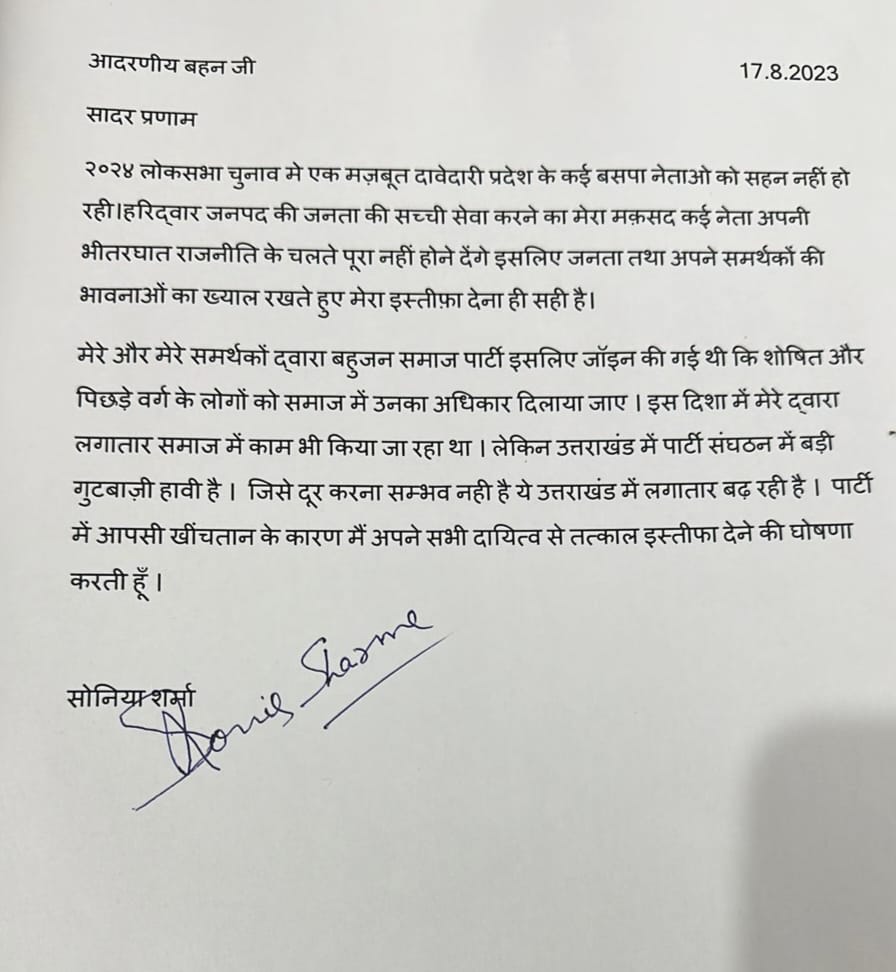 आदरणीय बहन जी 17.8.2023
सादर प्रणाम
२०२४ लोकसभा चुनाव मे एक मज़बूत दावेदारी प्रदेश के कई बसपा नेताओ को सहन नहीं हो
रही।हरिद्वार जनपद की जनता की सच्ची सेवा करने का मेरा मक़सद कई नेता अपनी
भीतरघात राजनीति के चलते पूरा नहीं होने देंगे इसलिए जनता तथा अपने समर्थकों की
भावनाओं का ख्याल रखते हुए मेरा इस्तीफ़ा देना ही सही है।
मेरे और मेरे समर्थकों द्वारा बहुजन समाज पार्टी इसलिए जॉइन की गई थी कि शोषित और
पिछड़े वर्ग के लोगों को समाज में उनका अधिकार दिलाया जाए । इस दिशा में मेरे द्वारा
लगातार समाज में काम भी किया जा रहा था । लेकिन उत्तराखंड में पार्टी संघठन में बड़ी
गुटबाज़ी हावी है । जिसे दूर करना सम्भव नही है ये उत्तराखंड में लगातार बढ़ रही है । पार्टी
में आपसी खींचतान के कारण मैं अपने सभी दायित्व से तत्काल इस्तीफा देने की घोषणा
करती हूँ ।
सोनिया शर्मा
Sonia Sharma